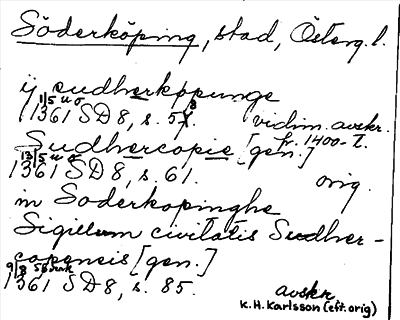 Söderköping, stad, Österg. l.
ij sudherköpunge
1/5 u o
1361 SD 8, s. 58. vidim. avskr.
fr. 1400-t.
Sudhercopie [gen.]
13/5 u o
1361 SD 8, s. 61. orig.
in Soderkopinghe
Sigillum civitatis Sudher-
copensis [gen.]
9/8
1361 SD 8, s. 85. avskr
K.H. Karlsson (eft. orig)